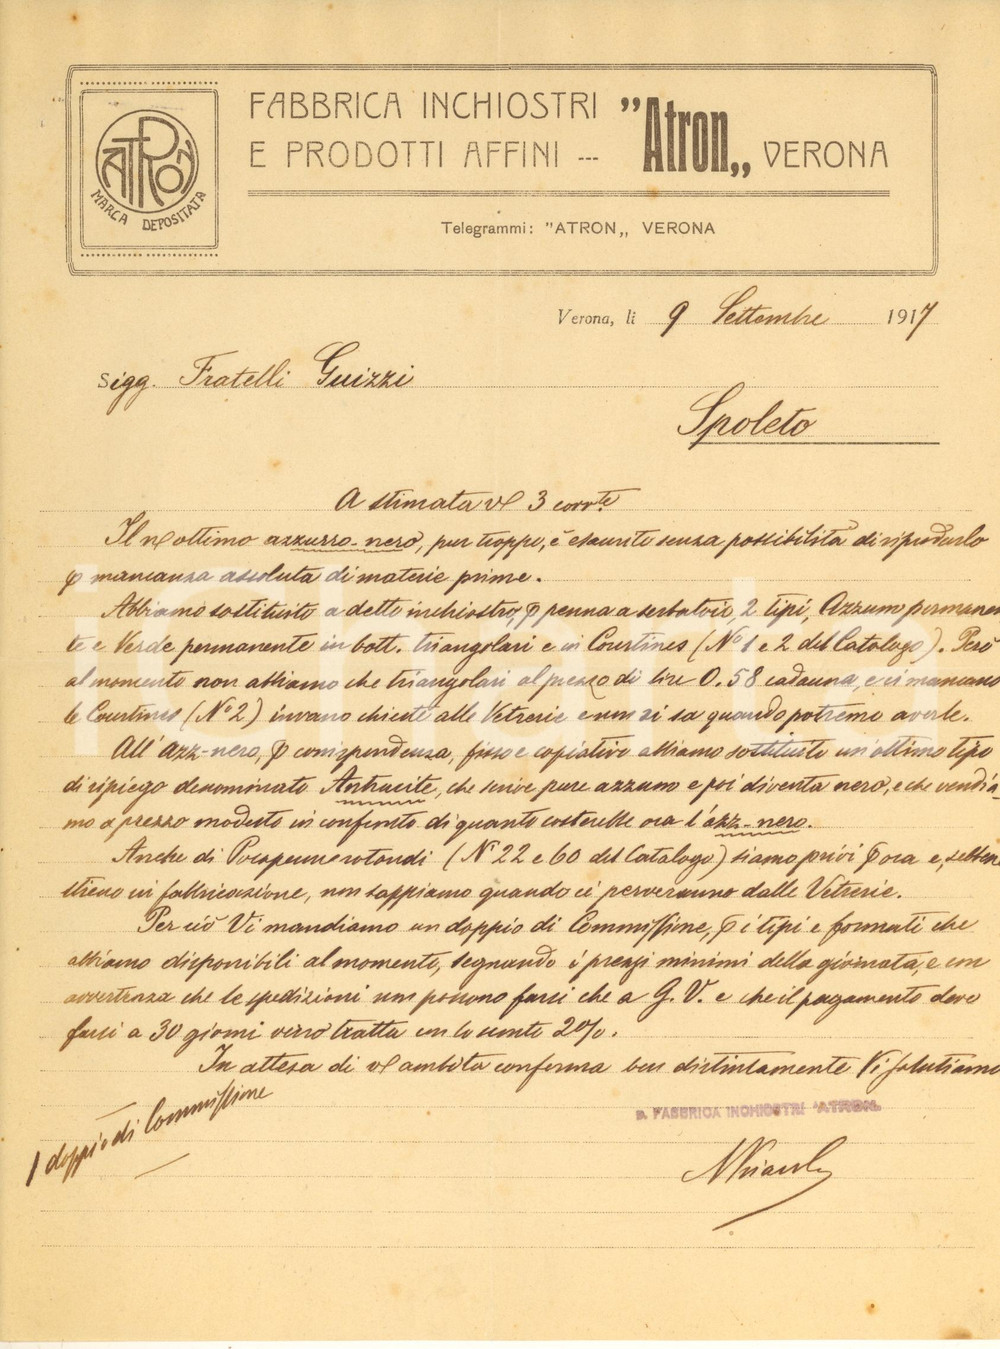 FABBRICA INCHIOSTRI "Atron„ VERONA
E PRODOTTI AFFINI ---
ATRON
MARCA DEPOSITATA
Telegrammi: "ATRON„ VERONA
Verona, li 9 Settembre 1917
Sigg. Fratelli Guizzi
Spoleto
A stimata vs 3 corr.te
Il ns ottimo azzurro-nero, pur troppo, è esaurito senza possibilità di riprodurlo
p mancanza assoluta di materie prime.
Abbiamo sostituito a detto inchiostro, p penna a serbatoio, 2 tipi, Azzurro permanen
te e Verde permanente in bott. triangolari e in Courtines (No 1 e 2 del Catalogo). Però
al momento non abbiamo che triangolari al prezzo di lire 0.58 cadauna, e ci mancano
le Courtines (No 2) invano chieste alle Vetrerie e non si sa quando potremo averle.
All'azz-nero, p corrispondenza, fisso e copiativo abbiamo sostituito un'ottimo tipo
di ripiego denominato Antracite, che scrive pure azzurro e poi diventa nero, e che vendia-
mo a prezzo modesto in confronto di quanto costerebbe ora l'azz-nero.
Anche di rotondi (No 22 e 60 del Catalogo) siamo privi p ora e, sebbene
siano in fabbricazione, non sappiamo quando ci perveranno dalle Vetrerie.
Per ciò Vi mandiamo un doppio di Commissione, p i tipi e formati che
abbiamo disponibili al momento, segnando i prezzi minimi della giornata, e con
avvertenza che le spedizioni non possono farsi che a G. V. e che il pagamento deve
farsi a 30 giorni verso tratta con lo sconto 2%.
In attesa di vs ambita conferma ben distintamente Vi salutiamo
1 doppio di Commissione
p. FABBRICA INCHIOSTRI "ATRON„